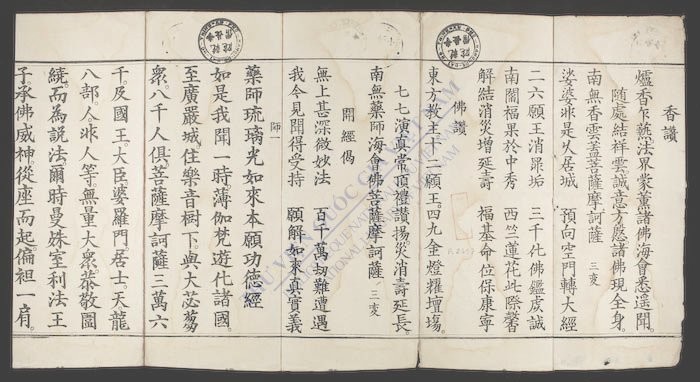 香讚
爐香乍爇法界蒙薰諸佛海會悉遥聞。
随處結祥雲誠意方慇諸佛現全身。
南無香雲蓋菩薩摩訶薩 三变
娑婆非是久居城 預向空門轉大經
二六願王消罪垢 三千化佛鑑虔誠
南閣福果於中秀 西竺蓮花此際馨
解結消災增延壽 福基命位保康寧
佛讚
東方教主十二願王。四九金燈耀壇場。
七七演真常頂禮讚揚。災消壽延長。
南無藥師海會佛菩薩摩訶薩 三变
開經偈
無上甚深微妙法 百千萬刼難遭遇
我今見聞得受持 願解如來真實義
師一
藥師琉璃光如來本願功德經
如是我聞一時。薄伽梵遊化諸國。
至廣嚴城。住樂音樹下。與大苾蒭
衆。八千人俱。菩薩摩訶薩三萬六
千。及國王。大臣婆羅門。居士。天龍
八部。人非人等。無量大衆。恭敬圍
繞。而為説法。爾時曼殊室利法王
子。承佛威神。從座而起。偏袒一肩。